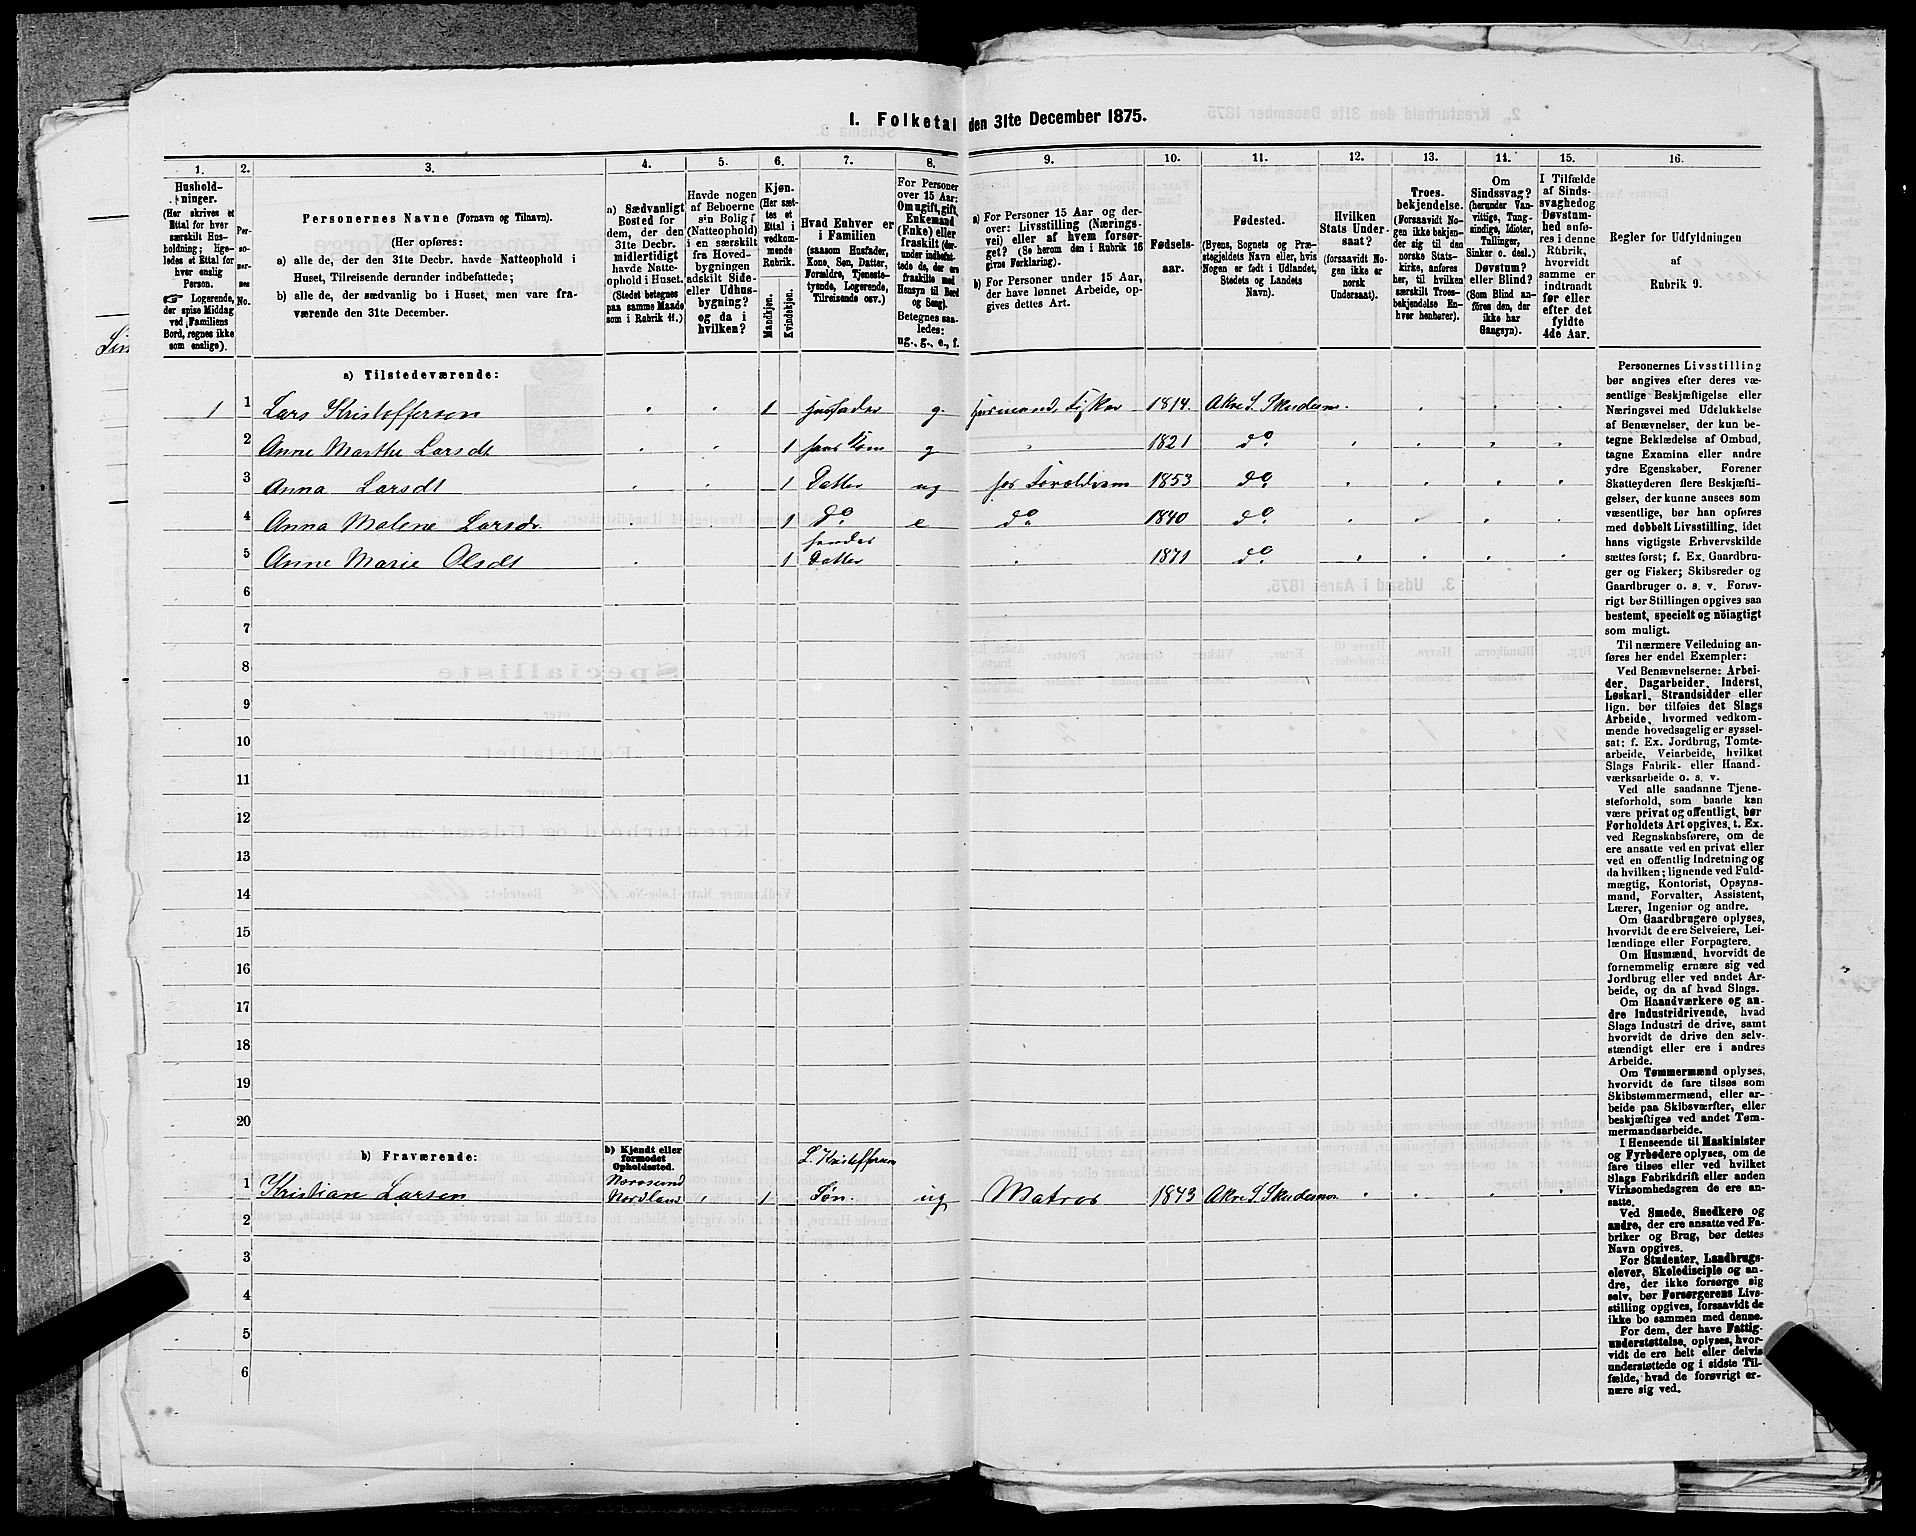 I. Folketal den 31te December 1875.
1. 2. 3. 4. 5. 6. 7. 8. 9. 10. 11. 12. 13. 14. 15. 16.
Hushold-
ninger.
(Her skrives et
Ettal for hver
særskilt Hus-
holdning; lige-
ledes et Ettal for
hver enslig
Person.
☞ Logerende,
der spise Middag
ved Familiens
Bord, regnes ikke
som enslige).
Per-
so-
ner-
nes
No.
Personernes Navne (Fornavn og Tilnavn).
(Her opføres:
a) alle de, der den 31te Decbr. havde Natteophold i
Huset, Tilreisende derunder indbefattede;
b) alle de, der sædvanlig bo i Huset, men vare fra-
værende den 31te December.
a) Sædvanligt
Bosted for
dem, der den
31te Decbr.
midlertidigt
havde Natte-
ophold i Huset.
(Stedet betegnes
paa samme Maade
som i Rubrik 11.)
Havde nogen
af Beboerne
sin Bolig
(Natteophold)
i en særskilt
fra Hoved-
bygningen
adskilt Side-
eller Udhus-
bygning?
og da i
hvilken?
Kjøn.
(Her sæt-
tes et
Ettal i
vedkom-
mende
Rubrik.
Mandkjøn.
Kvindekjøn.
Hvad Enhver er
i Familien
(saasom Husfader,
Kone, Søn, Datter,
Forældre, Tjeneste-
tyende, Logerende,
Tilreisende osv.)
For Personer
over 15 Aar:
Om ugift, gift,
Enkemand
(Enke) eller
fraskilt (der-
under indbefat-
tede de, der ere
fraskilte med
Hensyn til Bord
og Seng).
Betegnes saa-
ledes:
ug., g., e., f.
a) For Personer 15 Aar og der-
over: Livsstilling (Nærings-
vei) eller af hvem forsør-
get? (Se herom den i Rubrik 16
givne Forklaring).
b) For Personer under 15 Aar,
der have lønnet Arbeide, op-
gives dettes Art.
Fødsels-
aar.
Fødested.
(Byens, Sognets og Præ-
stegjeldets Navn eller, hvis
Nogen er født i Udlandet,
Stedets og Landets
Navn).
Hvilken
Stats Under-
saat?
(forsaavidt No-
gen ikke er
norsk
Undersaat).
Troes-
bekjendelse.
(Forsaavidt No-
gen ikke bekjen-
der sig til den
norske Stats-
kirke, anføres
her, til hvilken
særskilt Troes-
bekjendelse En-
hver henhører).
Om
Sindssvag?
(herunder Van-
vittige, Tung-
sindige, Idioter,
Tullinger,
Sinker o. desl.)
Døvstum?
eller Blind?
(Som Blind an-
føres den, der
ikke har
Gangsyn).
I Tilfælde
af Sinds-
svaghed og
Døvstum-
hed anfø-
res i denne
Rubrik,
hvorvidt
samme er
indtraadt
før eller
efter det
fyldte
4de Aar.
Regler for Udfyldningen
af
Rubrik 9.
a) Tilstedeværende:
1 1 Lars Kristofferson 1 husfader g. Husmand, Fisker 1814. Akre S. Skudesnes
2 Anne Marthe Larsdt 1 hans Kone g 1821 do
3 Anna Larsdt 1 Datter ug hos Forældrene 1853 do
4 Anna Malene Larsdt 1 do e do 1840 do
5 Anne Marie Olsdt 1 hendes Datter 1871 do
6
7
8
9
10
11
12
13
14
15
16
17
18
19
20
b) Fraværende:
b) Kjendt eller
formodet
Opholdssted.
L. Kristofferson
1 Kristian Larsen Nordland 1 Søn. ug Matros 1843 Akre S. Skudesnes
2
3
4
5
6
Personernes Livsstilling
bør angives efter deres væ-
sentlige Beskjæftigelse eller
Næringsvei med Udelukkelse
af Benævnelser, der kun be-
tegne Beklædelse af Ombud,
tagne Examina eller andre
ydre Egenskaber. Forener
Skatteyderen flere Beskjæfti-
gelser, der kunne ansees som
væsentlige, bør han opføres
med dobbelt Livsstilling, idet
hans vigtigste Erhvervskilde
sættes først; f. Ex. Gaardbru-
ger og Fisker; Skibsreder og
Gaardbruger o. s. v. Forøv-
rigt bør Stillingen opgives saa
bestemt, specielt og nöiagtigt
som muligt.
Til nærmere Veiledning an-
føres her endel Exempler:
Ved Benævnelserne: Arbei-
der, Dagarbeider, Inderst,
Løskarl, Strandsidder eller
lign. bør tilføies det Slags
Arbeide, hvormed vedkom-
mende hovedsagelig er syssel-
sat; f. Ex. Jordbrug, Tomte-
arbeide, Veiarbeide, hvilket
Slags Fabrik- eller Haand-
værksarbeide o. s. v.
Ved alle saadanne Tjene-
steforhold, som baade kan
være privat og offentligt, bør
Forholdets Art opgives, t. Ex.
ved Regnskabsførere, om de
ere ansatte ved en privat eller
ved en offentlig Indretning og
da hvilken; lignende ved Fuld-
mægtig, Kontorist, Opsyns-
mand, Forvalter, Assistent,
Lærer, Ingeniør og andre.
Om Gaardbrugere oplyses,
hvorvidt de ere Selveiere, Lei-
lændinge eller Forpagtere.
Om Husmænd, hvorvidt de
fornemmelig ernære sig ved
Jordbrug eller ved andet Ar-
beide, og da af hvad Slags.
Om Haandværkere og an-
dre Industridrivende, hvad
Slags Industri de drive, samt
hvorvidt de drive den selv-
stændigt eller ere i andres
Arbeide.
Om Tømmermænd oplyses,
hvorvidt de fare tilsøs som
Skibstømmermænd, eller ar-
beide paa Skibsværfter, eller
beskjæftiges ved andet Tøm-
mermandsarbeide.
I Henseende til Maskinister
og Fyrbødere oplyses, om de
fare tilsøs eller ved hvilket
Slags Fabrikdrift eller anden
Virksomhedsgren de ere an-
satte.
Ved Smede, Snedkere og
andre, der ere ansatte ved Fa-
briker og Brug, bør dettes
Navn opgives.
For Studenter, Landbrugs-
elever, Skoledisciple og an-
dre, der ikke forsørge sig
selv, bør Forsørgerens Livs-
stilling opgives, forsaavidt de
ikke bo sammen med denne.
For dem, der have Fattig-
understøttelse, oplyses, hvor-
vidt de ere helt eller delvis
understøttede og i sidste Til-
fælde, hvad de forøvrigt er-
nære sig ved.